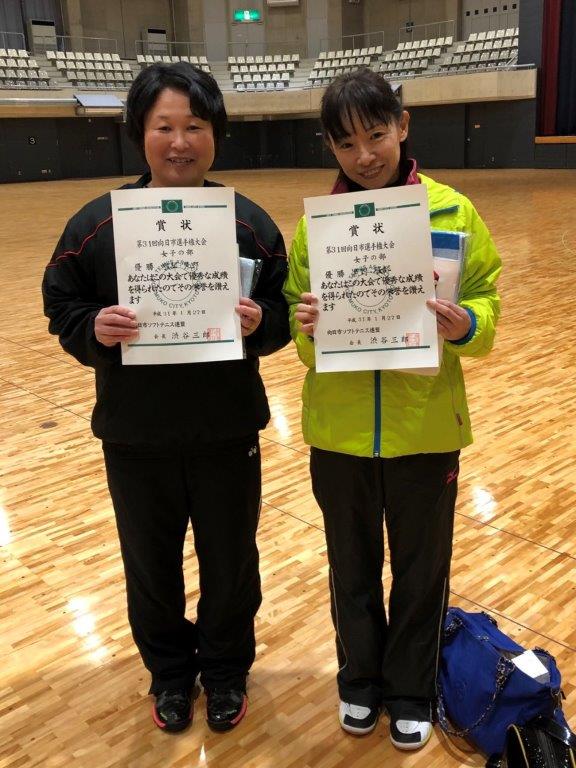 賞状
第31回向日市選手権大会
女子の部
優勝
あなたはこの大会で優秀な成績
を得られたのでその栄誉を讃え
ます
平成31年1月27日
向日市ソフトテニス連盟
会長 渋谷三郎
賞状
第31回向日市選手権大会
女子の部
優勝
あなたはこの大会で優秀な成績
を得られたのでその栄誉を讃え
ます
平成31年1月27日
向日市ソフトテニス連盟
会長 渋谷三郎
3